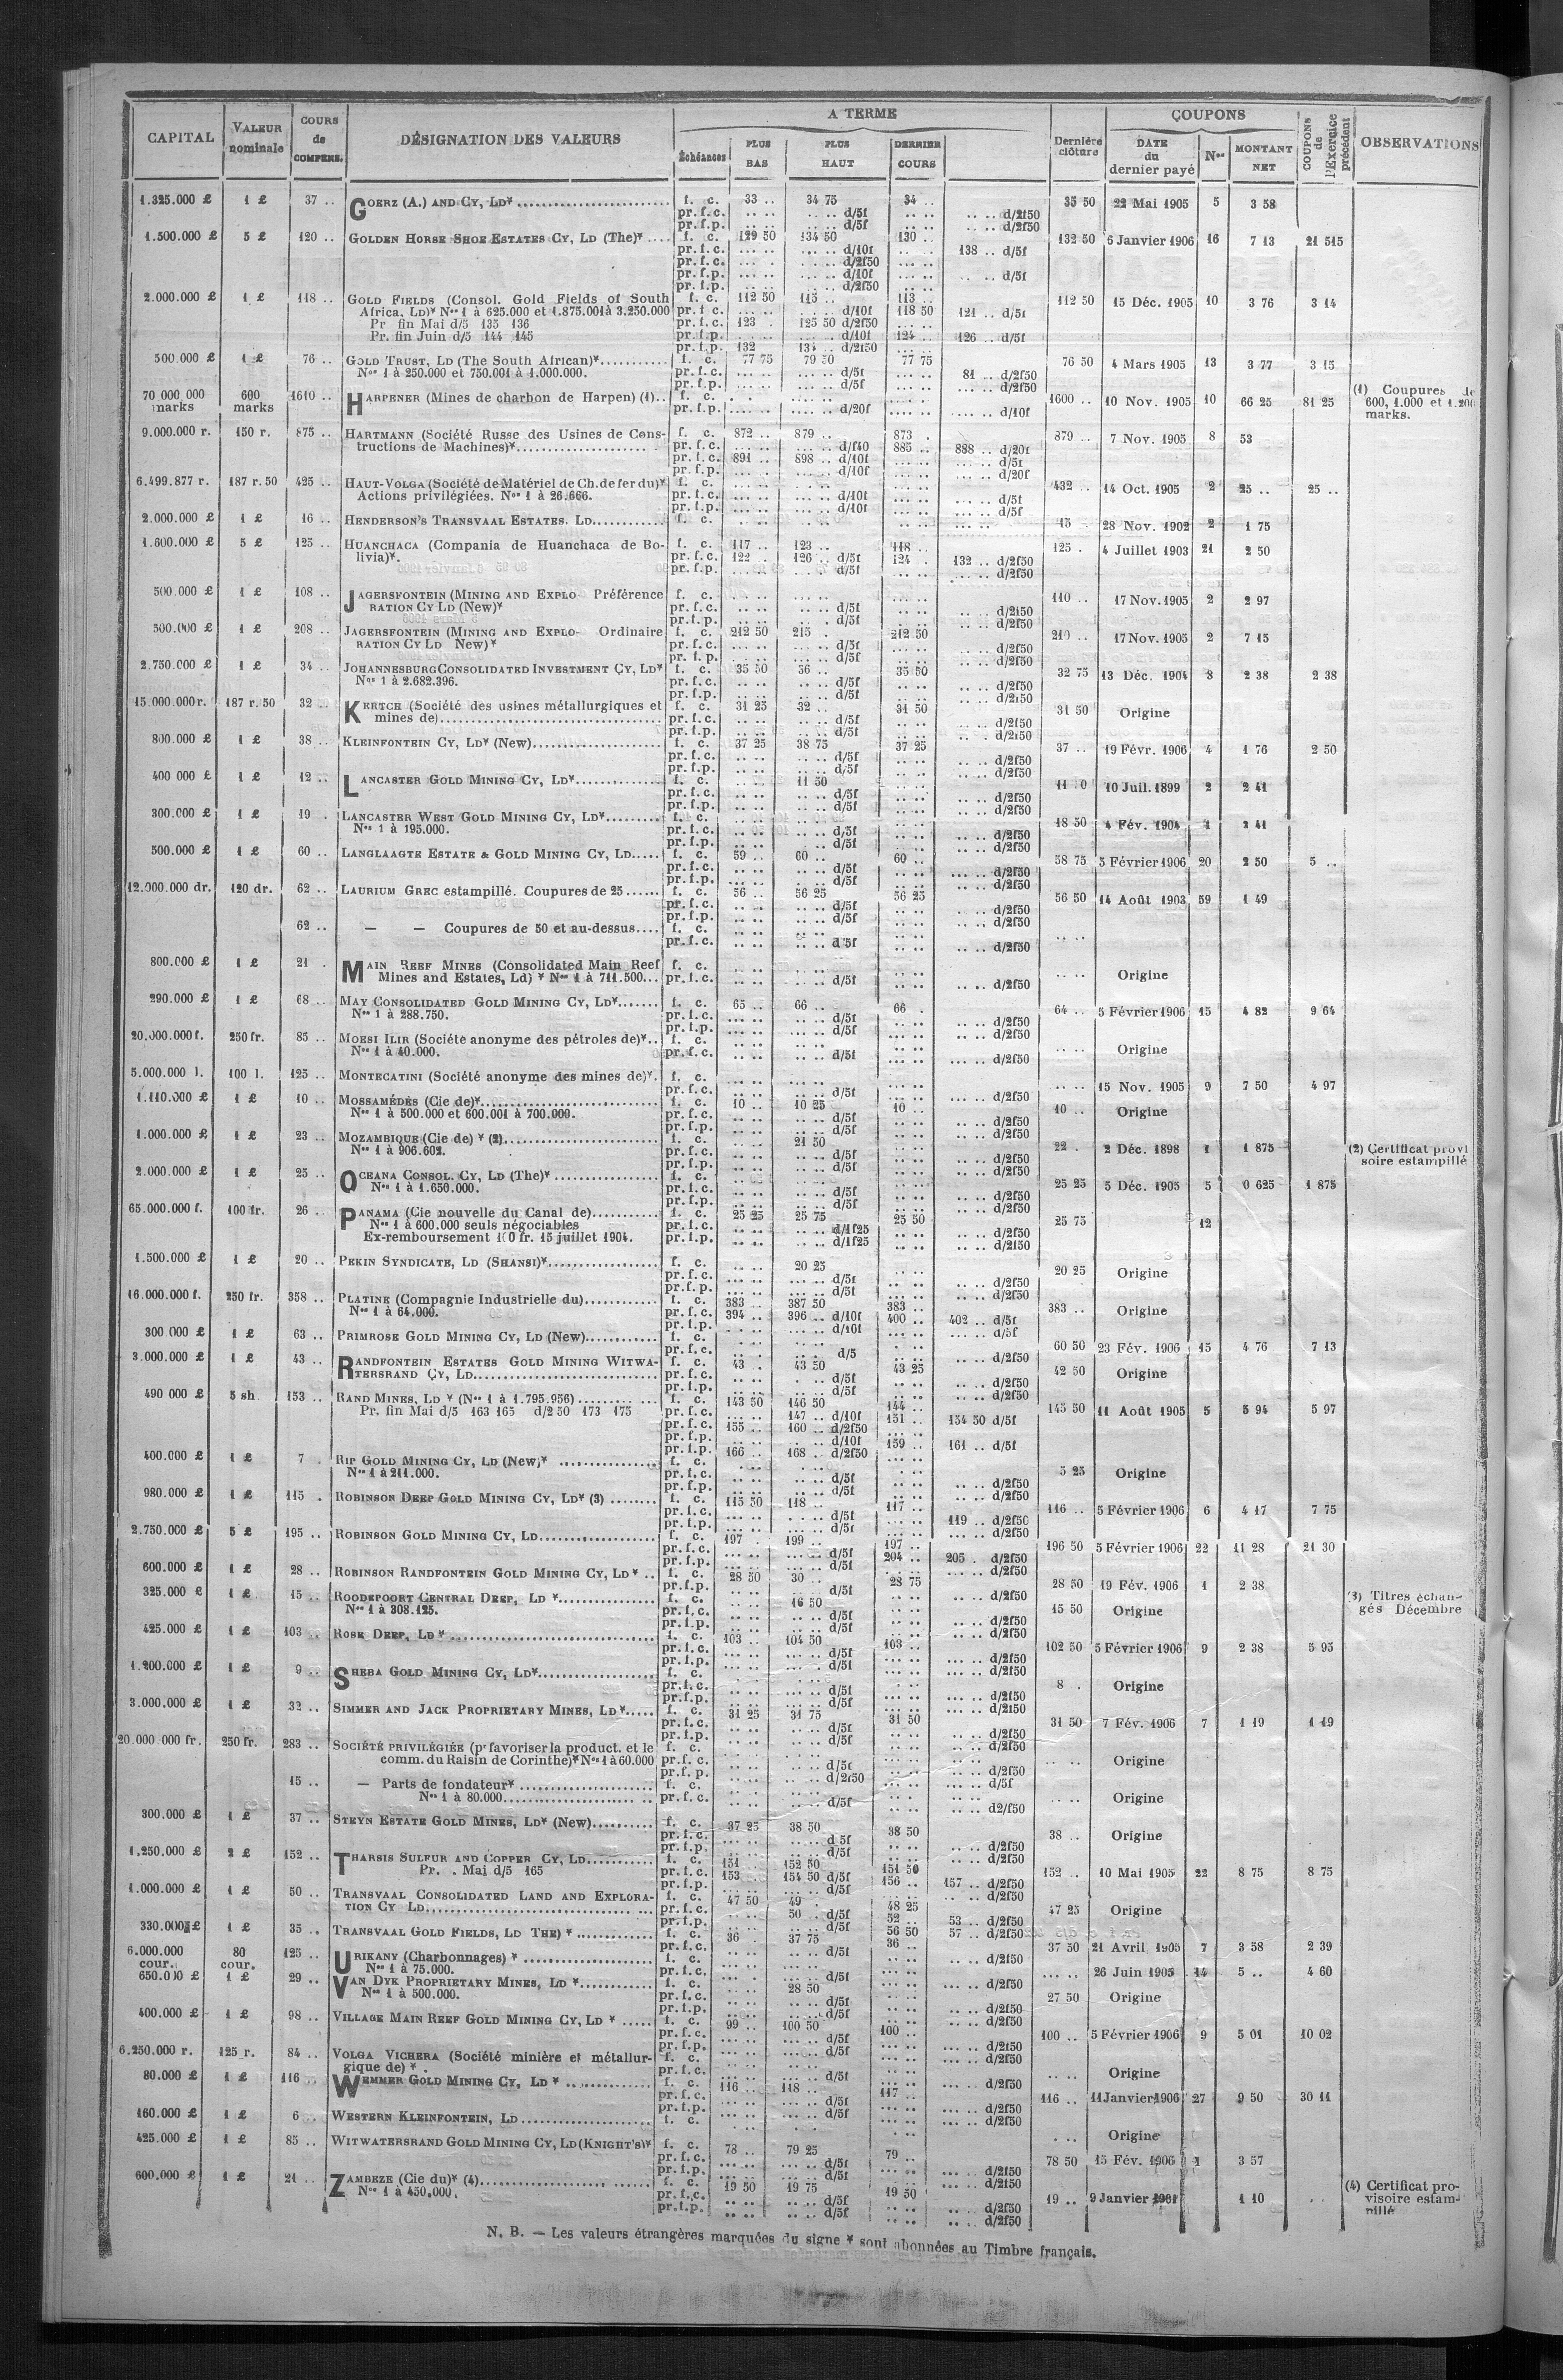 CAPITAL | VALEUR nominale | COURS de COMPENS. | DÉSIGNATION DES VALEURS | A TERME | Dernière clôture | COUPONS | COUPONS de l'Exercice précédent | OBSERVATIONS
Échéances | PLUS BAS | PLUS HAUT | DERNIER COURS | DATE du dernier payé | Nos | MONTANT NET
1.325.000 £ 1 £ 37 .. GOERZ (A.) AND CY, LD* f. c. 33 .. 34 75 34 .. 35 50 22 Mai 1905 5 3 58
pr. f. c. .. .. .. .. d/5f .. .. .. .. d/2f50
pr. f. p. .. .. .. .. d/5f .. .. .. .. d/2f50
1.500.000 £ 5 £ 120 .. GOLDEN HORSE SHOE ESTATES CY, LD (The)* f. c. 129 50 134 50 130 .. 132 50 6 Janvier 1906 16 7 13 21 515
pr. f. c. d/10f 138 .. d/5f
pr. f. c. d/2f50
pr. f. p. d/10f .. .. d/5f
pr. f. p. d/2f50
2.000.000 £ 1 £ 118 .. GOLD FIELDS (Consol. Gold Fields of South f. c. 112 50 115 .. 113 .. 112 50 15 Déc. 1905 10 3 76 3 14
Africa, LD)* Nos 1 à 625.000 et 1.875.001 à 3.250.000 pr. f. c. d/10f 118 50 121 .. d/5f
Pr fin Mai d/5 135 136 pr. f. c. 123 . 125 50 d/2f50
Pr. fin Juin d/5 144 145 pr. f. p. d/10f 124 .. 126 .. d/5f
pr. f. p. 132 d/2f50
500.000 £ 1 £ 76 .. GOLD TRUST, LD (The South African)* f. c. 77 75 79 50 77 75 76 50 4 Mars 1905 13 3 77 3 15
Nos 1 à 250.000 et 750.001 à 1.000.000. pr. f. c. d/5f 81 .. d/2f50
pr. f. p. d/5f d/2f50
70 000 000 marks 600 marks 1610 .. HARPENER (Mines de charbon de Harpen) (1) f. c. 1600 .. 10 Nov. 1905 10 66 25 81 25 (1) Coupures de 600, 1.000 et 1.200 marks.
pr. f. p. d/20f d/10f
9.000.000 r. 150 r. 875 .. HARTMANN (Société Russe des Usines de Cons- f. c. 872 .. 879 .. 873 . 879 .. 7 Nov. 1905 8 53
tructions de Machines)* pr. f. c. d/f40 885 .. 888 .. d/20f
pr. f. c. 891 .. 898 .. d/10f d/5f
pr. f. p. d/10f d/20f
6.499.877 r. 187 r. 50 425 .. HAUT-VOLGA (Société de Matériel de Ch. de fer du)* f. c. 432 .. 14 Oct. 1905 2 25 .. 25 ..
Actions privilégiées. Nos 1 à 26.666. pr. f. c. d/10f d/5f
pr. f. p. d/10f d/5f
2.000.000 £ 1 £ 16 .. HENDERSON'S TRANSVAAL ESTATES. LD f. c. 15 28 Nov. 1902 2 1 75
1.600.000 £ 5 £ 125 .. HUANCHACA (Compania de Huanchaca de Bo- f. c. 117 .. 123 .. 118 .. 125 . 4 Juillet 1903 21 2 50
livia)*. pr. f. c. 122 .. 126 .. d/5f 124 . 132 .. d/2f50
pr. f. p. d/5f d/2f50
500.000 £ 1 £ 108 .. JAGERSFONTEIN (MINING AND EXPLO Préférence f. c. 110 .. 17 Nov. 1905 2 2 97
RATION CY LD (New)* pr. f. c. d/5f d/2f50
pr. f. p. d/5f d/2f50
500.000 £ 1 £ 208 .. JAGERSFONTEIN (MINING AND EXPLO- Ordinaire f. c. 212 50 215 . 212 50 210 .. 17 Nov. 1905 2 7 15
RATION CY LD New)* pr. f. c. d/5f d/2f50
pr. f. p. d/5f d/2f50
2.750.000 £ 1 £ 34 .. JOHANNESBURG CONSOLIDATED INVESTMENT CY, LD* f. c. 35 50 36 .. 35 50 32 75 13 Déc. 1904 8 2 38 2 38
Nos 1 à 2.682.396. pr. f. c. d/5f d/2f50
pr. f. p. d/5f d/2f50
15.000.000 r. 187 r. 50 32 .. KERTCH (Société des usines métallurgiques et f. c. 31 25 32 .. 31 50 31 50 Origine
mines de) pr. f. c. d/5f d/2f50
pr. f. p. d/5f d/2f50
800.000 £ 1 £ 38 .. KLEINFONTEIN CY, LD* (New) f. c. 37 25 38 75 37 25 37 .. 19 Févr. 1906 4 1 76 2 50
pr. f. c. d/5f d/2f50
pr. f. p. d/5f d/2f50
400 000 £ 1 £ 12 .. LANCASTER GOLD MINING CY, LD* f. c. 11 50 10 Juil. 1899 2 2 41
pr. f. c. d/5f d/2f50
pr. f. p. d/5f d/2f50
300.000 £ 1 £ 19 . LANCASTER WEST GOLD MINING CY, LD* f. c. 18 50 4 Fév. 1904 1 2 41
Nos 1 à 195.000. pr. f. c. d/5f d/2f50
pr. f. p. d/5f d/2f50
500.000 £ 1 £ 60 .. LANGLAAGTE ESTATE & GOLD MINING CY, LD f. c. 59 .. 60 .. 60 .. 58 75 5 Février 1906 20 2 50 5 ..
pr. f. c. d/5f d/2f50
pr. f. p. d/5f d/2f50
12.000.000 dr. 120 dr. 62 .. LAURIUM GREC estampillé. Coupures de 25 f. c. 56 .. 56 25 56 25 56 50 14 Août 1903 59 1 49
pr. f. c. d/5f d/2f50
pr. f. p. d/5f d/2f50
62 .. — — Coupures de 50 et au-dessus f. c.
pr. f. c. d/5f d/2f50
800.000 £ 1 £ 21 . MAIN REEF MINES (Consolidated Main Reef f. c. Origine
Mines and Estates, Ld) * Nos 1 à 711.500 pr. f. c. d/5f d/2f50
290.000 £ 1 £ 68 .. MAY CONSOLIDATED GOLD MINING CY, LD* f. c. 65 .. 66 .. 66 . 64 .. 5 Février 1906 15 4 82 9 64
Nos 1 à 288.750. pr. f. c. d/5f d/2f50
pr. f. p. d/5f d/2f50
20.000.000 f. 250 fr. 85 .. MOESI ILIR (Société anonyme des pétroles de)* f. c. Origine
Nos 1 à 40.000. pr. f. c. d/5f d/2f50
5.000.000 l. 100 l. 125 .. MONTECATINI (Société anonyme des mines de)* f. c. 15 Nov. 1905 9 7 50 4 97
pr. f. c. d/5f d/2f50
1.110.000 £ 1 £ 10 .. MOSSAMÉDÈS (Cie de)* f. c. 10 .. 10 25 10 .. 10 .. Origine
Nos 1 à 500.000 et 600.001 à 700.000. pr. f. c. d/5f d/2f50
pr. f. p. d/5f d/2f50
1.000.000 £ 1 £ 23 .. MOZAMBIQUE (Cie de) * (2) f. c. 21 50 22 . 2 Déc. 1898 1 1 875 (2) Certificat provisoire estampillé
Nos 1 à 906.602. pr. f. c. d/5f d/2f50
pr. f. p. d/5f d/2f50
2.000.000 £ 1 £ 25 .. OCEANA CONSOL. CY, LD (The)* f. c. 25 25 5 Déc. 1905 5 0 625 1 875
Nos 1 à 1.650.000. pr. f. c. d/5f d/2f50
pr. f. p. d/5f d/2f50
65.000.000 f. 100 fr. 26 .. PANAMA (Cie nouvelle du Canal de) f. c. 25 25 25 75 25 50 25 75 12
Nos 1 à 600.000 seuls négociables pr. f. c. d/1f25 d/2f50
Ex-remboursement 100 fr. 15 juillet 1904. pr. f. p. d/1f25 d/2f50
1.500.000 £ 1 £ 20 .. PEKIN SYNDICATE, LD (SHANSI)* f. c. 20 25 20 25 Origine
pr. f. c. d/5f d/2f50
pr. f. p. d/5f d/2f50
16.000.000 f. 250 fr. 358 .. PLATINE (Compagnie Industrielle du) f. c. 383 .. 387 50 383 .. 383 .. Origine
Nos 1 à 64.000. pr. f. c. 394 .. 396 .. d/10f 400 .. 402 .. d/5f
pr. f. p. d/10f d/5f
300 000 £ 1 £ 63 .. PRIMROSE GOLD MINING CY, LD (New) f. c. 60 50 23 Fév. 1906 15 4 76 7 13
pr. f. c. d/5 d/2f50
3.000.000 £ 1 £ 43 .. RANDFONTEIN ESTATES GOLD MINING WITWA- f. c. 43 . 43 50 43 25 42 50 Origine
TERSRAND CY, LD pr. f. c. d/5f d/2f50
pr. f. p. d/5f d/2f50
490 000 £ 5 sh 153 .. RAND MINES, LD * (Nos 1 à 1.795.956) f. c. 143 50 146 50 144 .. 145 50 11 Août 1905 5 5 94 5 97
Pr. fin Mai d/5 163 165 d/2 50 173 175 pr. f. c. 147 .. d/10f 151 .. 154 50 d/5f
pr. f. c. 155 .. 160 .. d/2f50
pr. f. p. d/10f 159 .. 161 .. d/5f
pr. f. p. 166 .. 168 . d/2f50
400.000 £ 1 £ 7 . RIP GOLD MINING CY, LD (New)* f. c. 5 25 Origine
Nos 1 à 211.000. pr. f. c. d/5f d/2f50
pr. f. p. d/5f d/2f50
980.000 £ 1 £ 115 . ROBINSON DEEP GOLD MINING CY, LD* (3) f. c. 115 50 118 .. 117 .. 116 .. 5 Février 1906 6 4 17 7 75
pr. f. c. d/5f 119 .. d/2f50
pr. f. p. d/5f d/2f50
2.750.000 £ 5 £ 195 .. ROBINSON GOLD MINING CY, LD f. c. 197 . 199 .. 197 .. 196 50 5 Février 1906 22 11 28 21 30
pr. f. c. d/5f 204 .. 205 . d/2f50
pr. f. p. d/5f d/2f50
600.000 £ 1 £ 28 .. ROBINSON RANDFONTEIN GOLD MINING CY, LD * f. c. 28 50 30 .. 28 75 28 50 19 Fév. 1906 1 2 38
pr. f. p. d/5f d/2f50
325.000 £ 1 £ 15 .. ROODEPOORT CENTRAL DEEP, LD * f. c. 16 50 15 50 Origine (3) Titres échangés Décembre
Nos 1 à 308.125. pr. f. c. d/5f d/2f50
pr. f. p. d/5f d/2f50
425.000 £ 1 £ 103 .. ROSE DEEP, LD * f. c. 103 .. 104 50 103 .. 102 50 5 Février 1906 9 2 38 5 95
pr. f. c. d/5f d/2f50
pr. f. p. d/5f d/2f50
1.200.000 £ 1 £ 9 .. SHEBA GOLD MINING CY, LD* f. c. 8 . Origine
pr. f. c. d/5f d/2f50
pr. f. p. d/5f d/2f50
3.000.000 £ 1 £ 32 .. SIMMER AND JACK PROPRIETARY MINES, LD* f. c. 31 25 31 75 31 50 31 50 7 Fév. 1906 7 1 19 1 19
pr. f. c. d/5f d/2f50
pr. f. p. d/5f d/2f50
20.000 000 fr. 250 fr. 283 .. SOCIÉTÉ PRIVILÉGIÉE (pr favoriser la product. et le f. c. Origine
comm. du Raisin de Corinthe)* Nos 1 à 60.000 pr. f. c. d/5f d/2f50
pr. f. p. d/2f50 d/5f
15 .. — Parts de fondateur* f. c. Origine
Nos 1 à 80.000 pr. f. c. d/5f d2/f50
300.000 £ 1 £ 37 .. STEYN ESTATE GOLD MINES, LD* (New) f. c. 37 25 38 50 38 50 38 .. Origine
pr. f. c. d 5f d/2f50
pr. f. p. d/5f d/2f50
1.250.000 £ 2 £ 152 .. THARSIS SULFUR AND COPPER CY, LD f. c. 151 . 152 50 151 50 152 .. 10 Mai 1905 22 8 75 8 75
Pr. . Mai d/5 165 pr. f. c. 153 . 154 50 d/5f 156 .. 157 .. d/2f50
pr. f. p. d/5f d/2f50
1.000.000 £ 1 £ 50 .. TRANSVAAL CONSOLIDATED LAND AND EXPLORA- f. c. 47 50 49 . 48 25 47 25 Origine
TION CY LD pr. f. c. 50 .. d/5f 52 .. 53 .. d/2f50
pr. f. p. d/5f 56 50 57 .. d/2f50
330.000 £ 1 £ 35 .. TRANSVAAL GOLD FIELDS, LD THE) * f. c. 36 . 37 75 36 .. 37 50 21 Avril 1905 7 3 58 2 39
pr. f. c. d/5f d/2f50
6.000.000 cour. 80 cour. 125 .. URIKANY (Charbonnages) * f. c. 26 Juin 1905 14 5 .. 4 60
Nos 1 à 75.000. pr. f. c. d/5f d/2f50
650.000 £ 1 £ 29 .. VAN DYK PROPRIETARY MINES, LD * f. c. 28 50 27 50 Origine
Nos 1 à 500.000. pr. f. c. d/5f d/2f50
pr. f. p. d/5f d/2f50
400.000 £ 1 £ 98 .. VILLAGE MAIN REEF GOLD MINING CY, LD * f. c. 99 .. 100 50 100 .. 100 .. 5 Février 1906 9 5 01 10 02
pr. f. c. d/5f d/2f50
pr. f. p. d/5f d/2f50
6.250.000 r. 125 r. 84 .. VOLGA VICHERA (Société minière et métallur- f. c. Origine
gique de) * . pr. f. c. d/5f d/2f50
80.000 £ 1 £ 116 .. WEMMER GOLD MINING CY, LD * f. c. 116 .. 118 .. 117 .. 116 .. 11 Janvier 1906 27 9 50 30 11
pr. f. c. d/5f d/2f50
pr. f. p. d/5f d/2f50
160.000 £ 1 £ 6 .. WESTERN KLEINFONTEIN, LD f. c. Origine
425.000 £ 1 £ 85 .. WITWATERSRAND GOLD MINING CY, LD (KNIGHT'S)* f. c. 78 .. 79 25 79 .. 78 50 15 Fév. 1906 1 3 57
pr. f. c. d/5f d/2f50
pr. f. p. d/5f d/2f50
600.000 £ 1 £ 21 .. ZAMBEZE (Cie du)* (4) f. c. 19 50 19 75 19 50 19 .. 9 Janvier 1 10 (4) Certificat provisoire estampillé
Nos 1 à 450.000. pr. f. c. d/5f d/2f50
pr. f. p. d/5f d/2f50
N. B. — Les valeurs étrangères marquées du signe * sont abonnées au Timbre français.